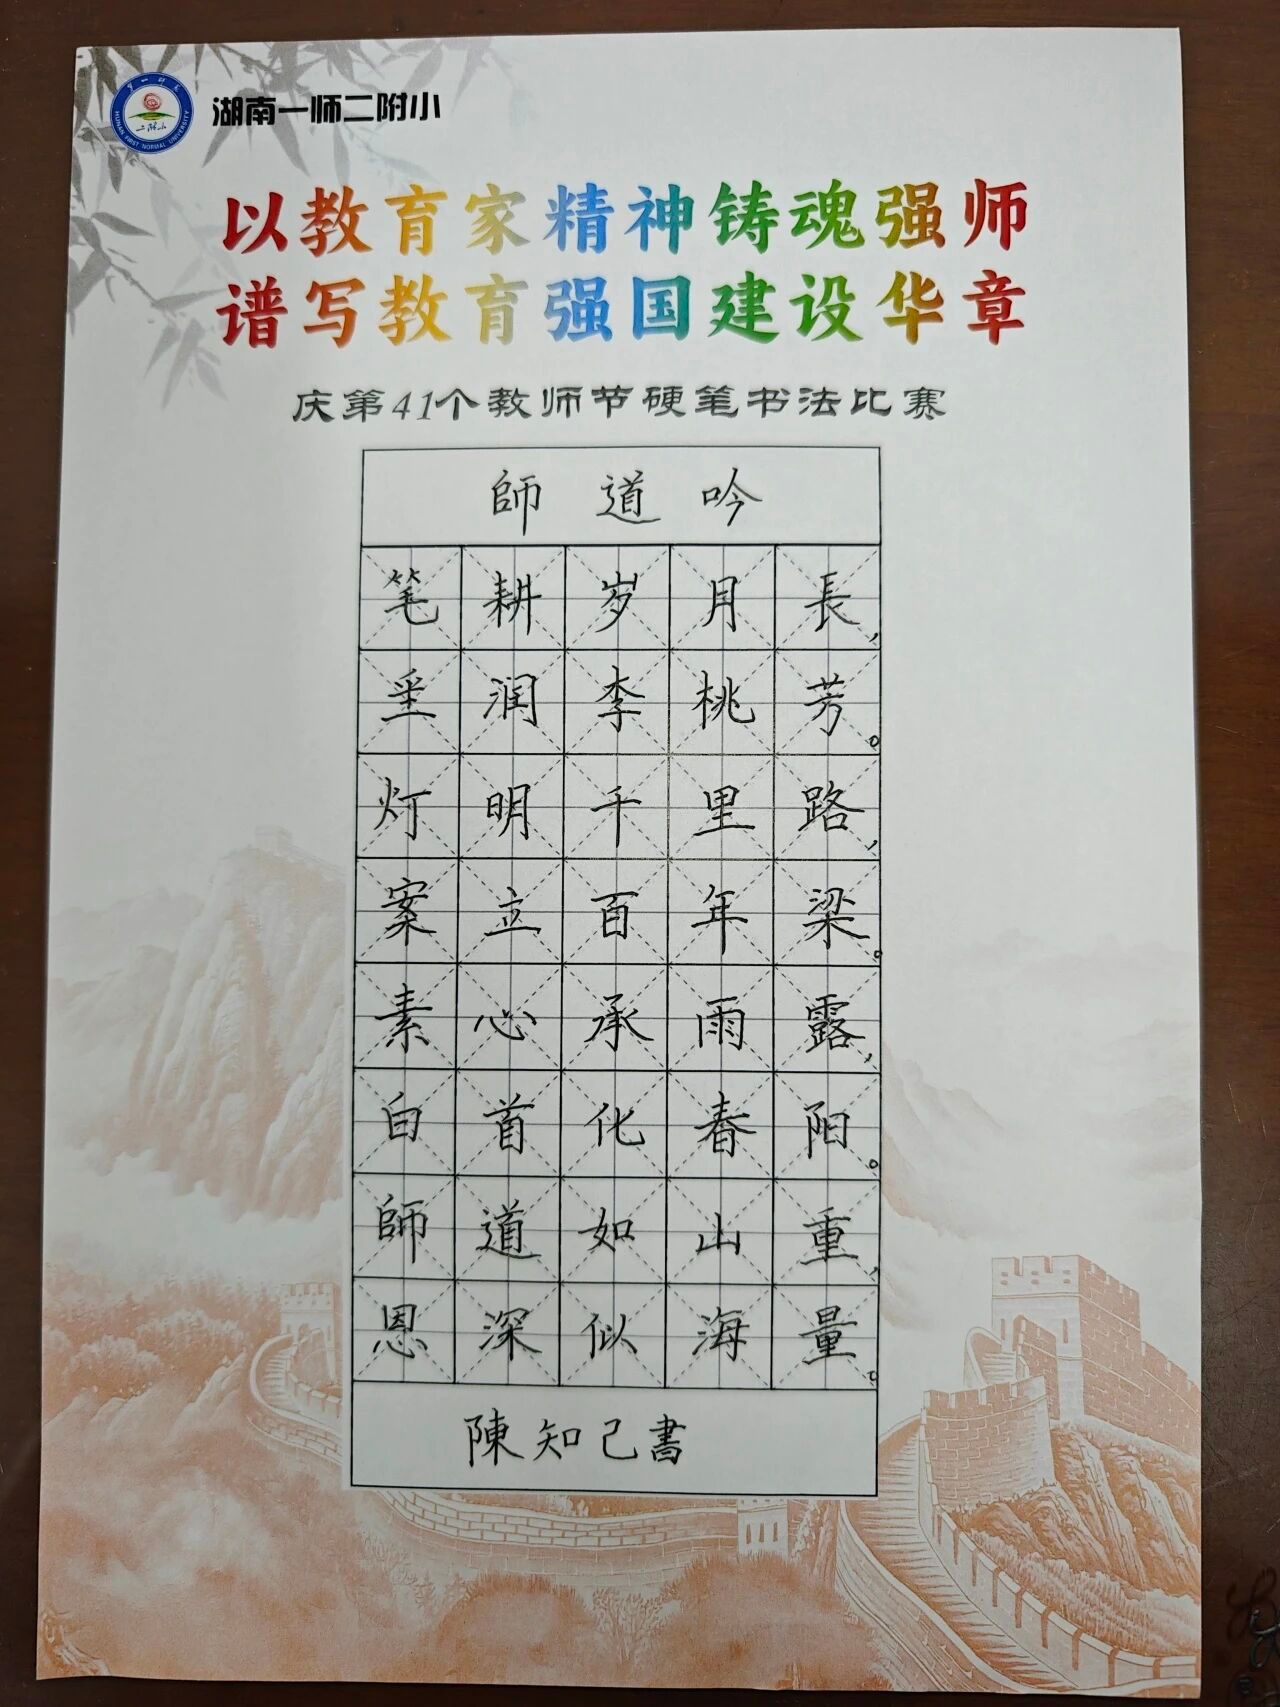 湖南一师二附小
HUNAN FIRST NORMAL UNIVERSITY
以教育家精神铸魂强师
谱写教育强国建设华章
庆第41个教师节硬笔书法比赛
師道吟
笔耕岁月長,
垩润李桃芳。
灯明千里路,
案立百年梁。
素心承雨露,
白首化春阳。
師道如山重,
恩深似海量。
陳知己書